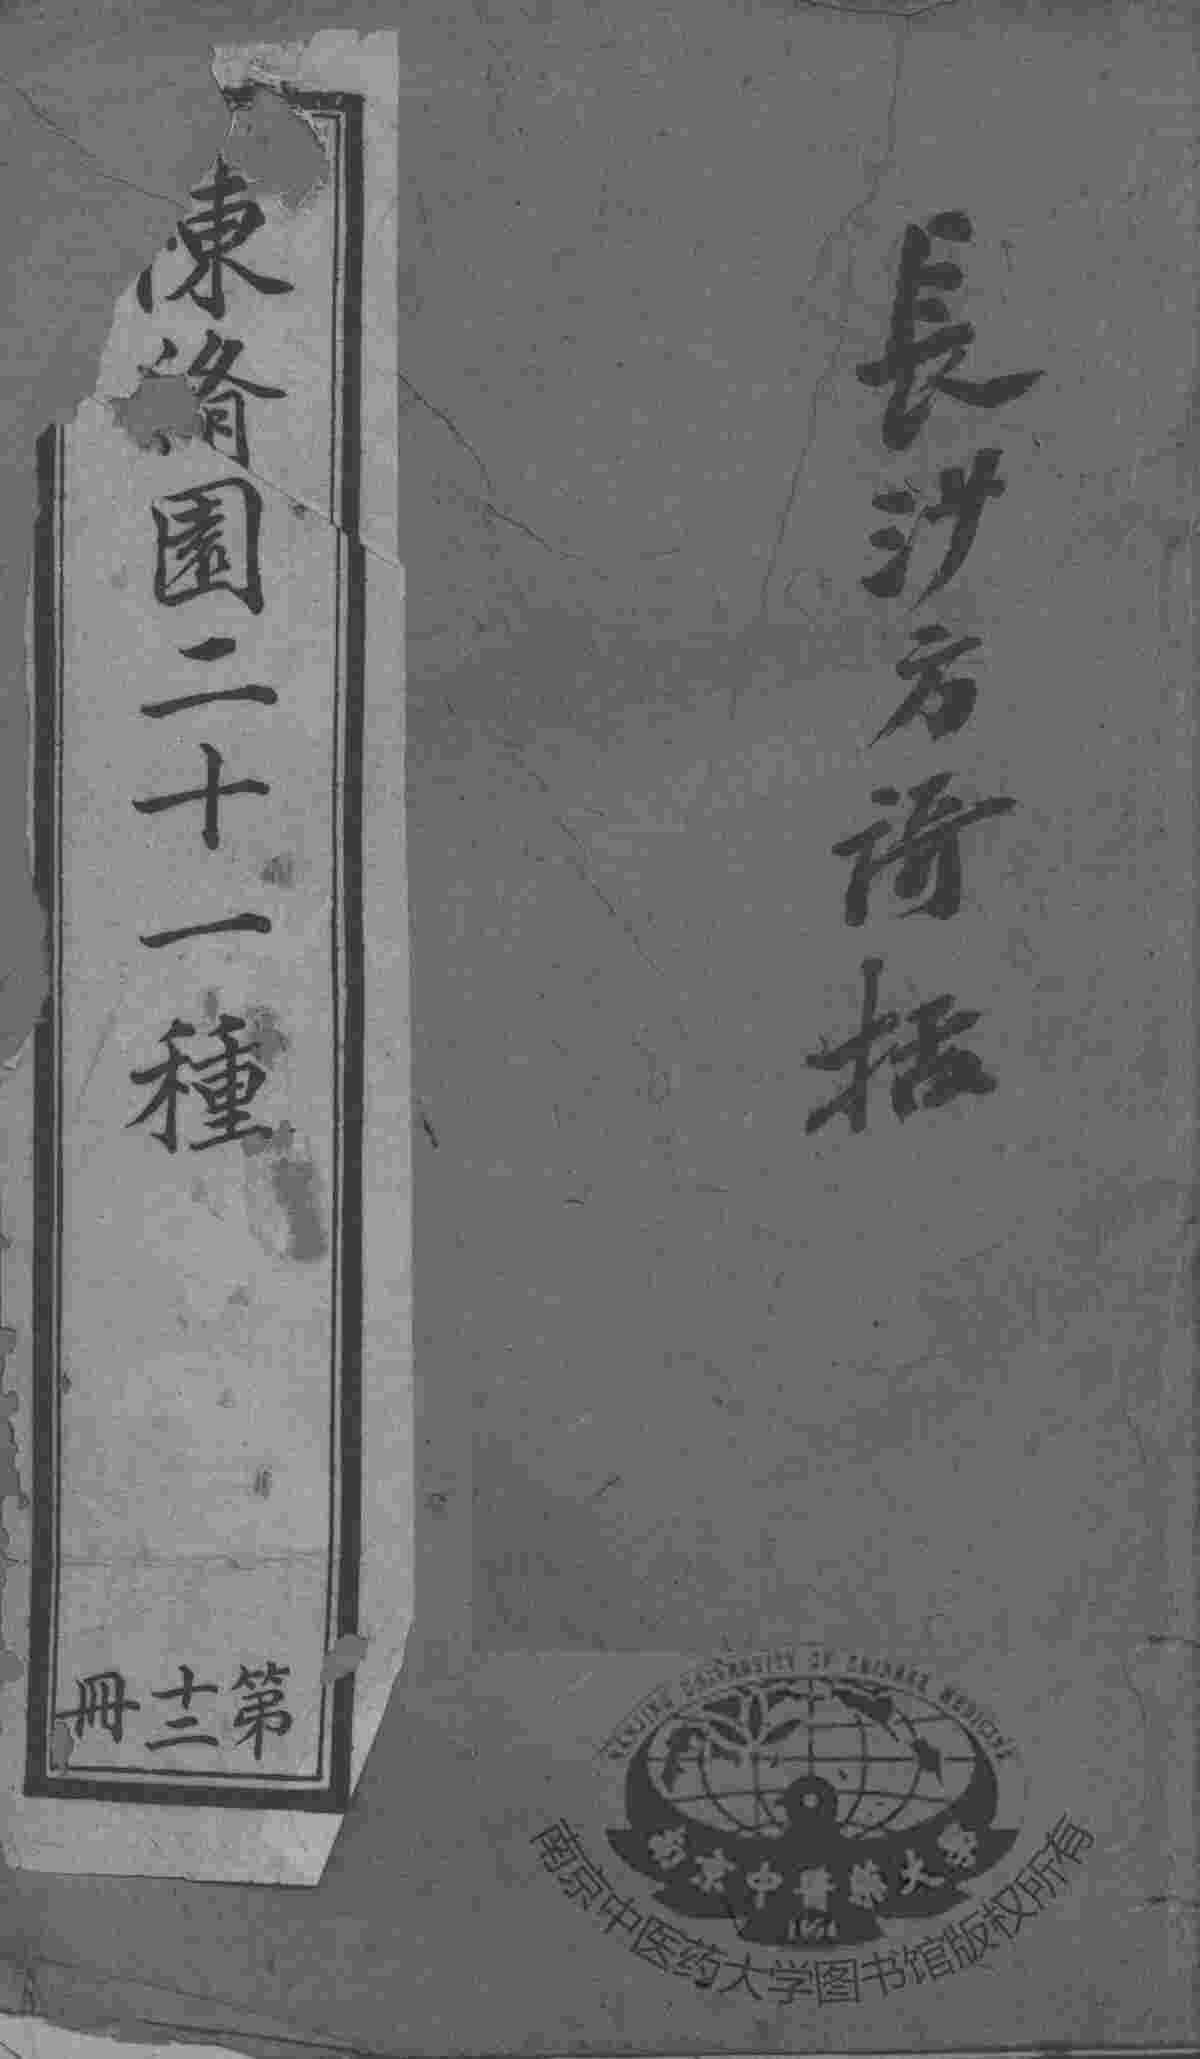 長沙方謌括
陳脩園二十一種
第十二冊
NANJING UNIVERSITY OF CHINESE MEDICINE
南京中醫藥大學
南京中医药大学图书馆版权所有